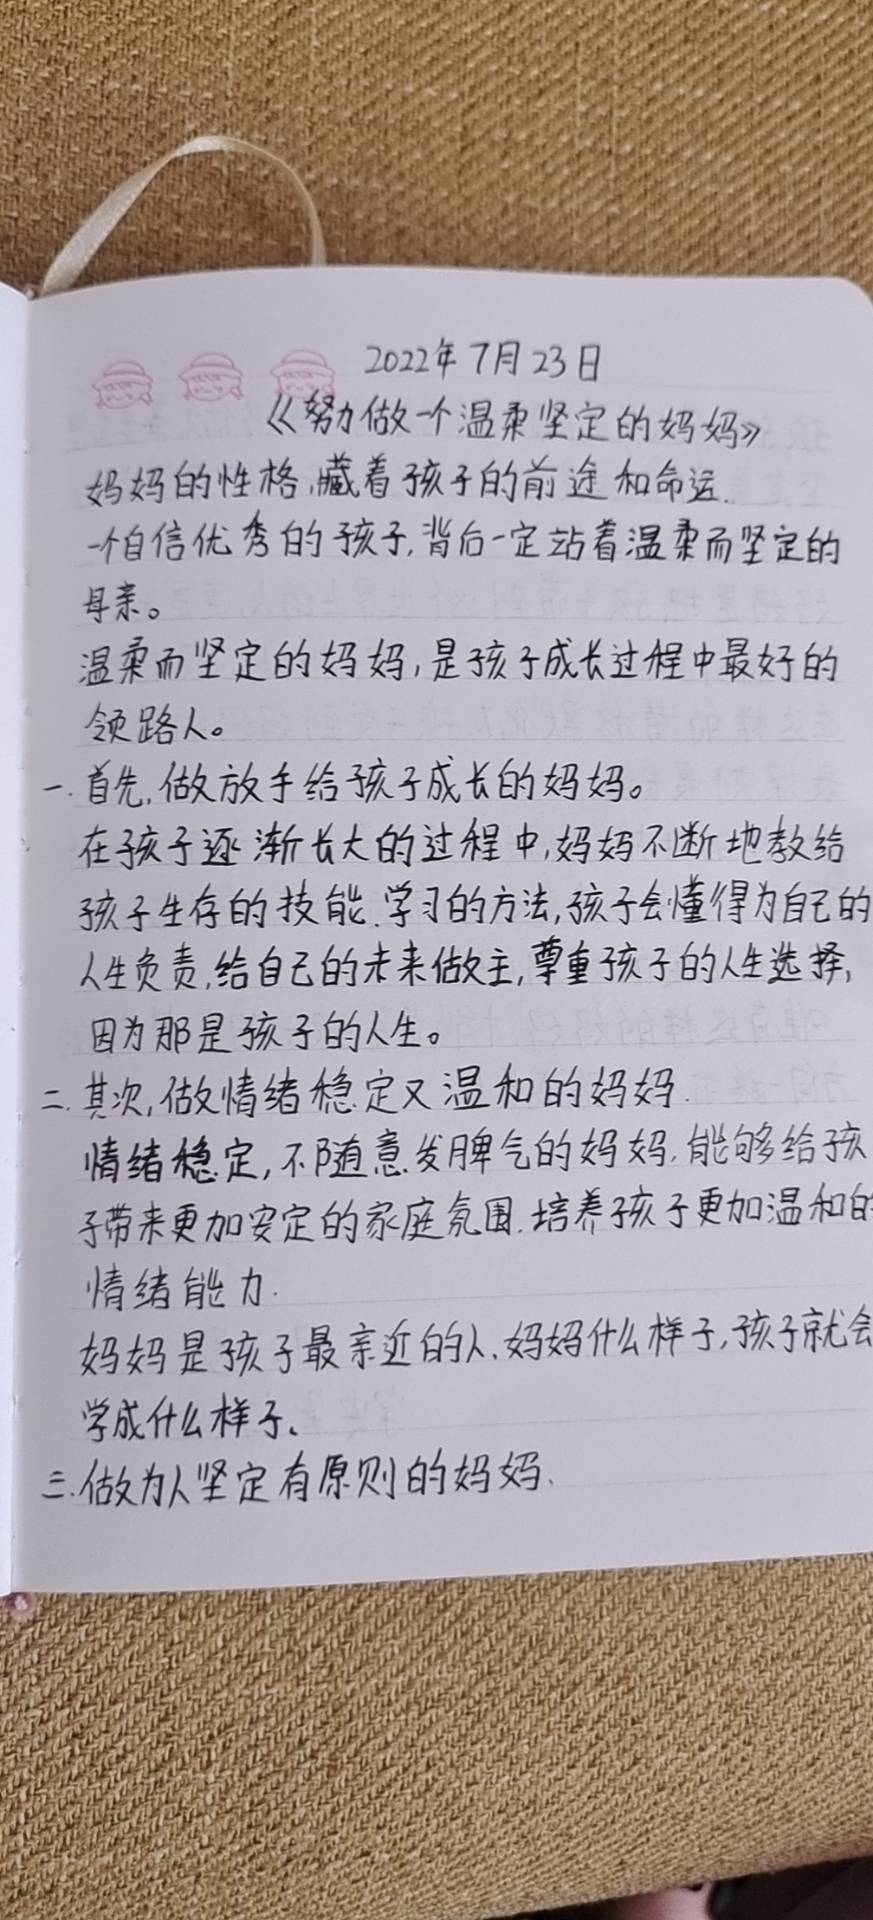 2022年7月23日
《努力做一个温柔坚定的妈妈》
妈妈的性格,藏着孩子的前途和命运.
一个自信优秀的孩子,背后一定站着温柔而坚定的
母亲。
温柔而坚定的妈妈,是孩子成长过程中最好的
领路人。
一.首先,做放手给孩子成长的妈妈。
在孩子逐渐长大的过程中,妈妈不断地教给
孩子生存的技能.学习的方法,孩子会懂得为自己的
人生负责,给自己的未来做主,尊重孩子的人生选择,
因为那是孩子的人生。
二.其次,做情绪稳定又温和的妈妈.
情绪稳定,不随意发脾气的妈妈,能够给孩
子带来更加安定的家庭氛围.培养孩子更加温和的
情绪能力.
妈妈是孩子最亲近的人、妈妈什么样子,孩子就会
学成什么样子、
三.做为人坚定有原则的妈妈.